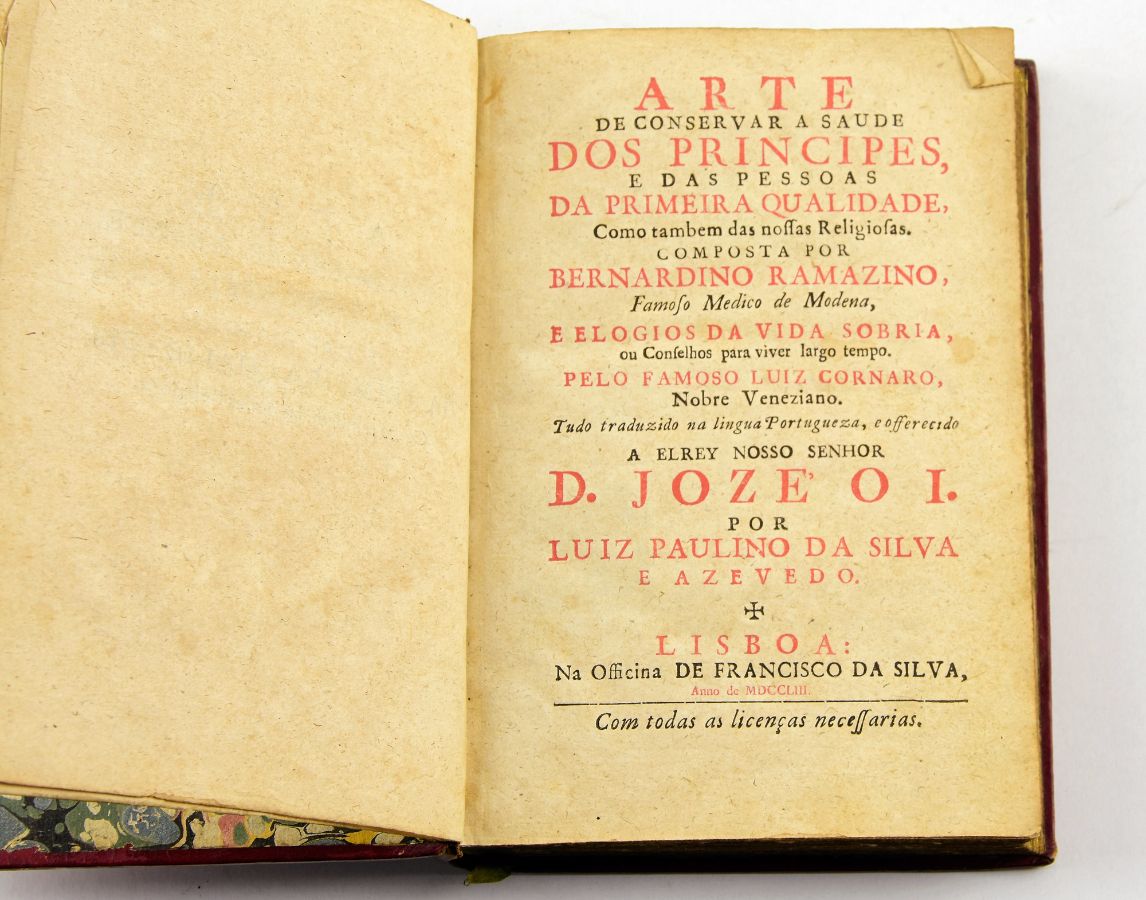 ARTE
DE CONSERVAR A SAUDE
DOS PRINCIPES,
E DAS PESSOAS
DA PRIMEIRA QUALIDADE,
Como tambem das noſſas Religioſas.
COMPOSTA POR
BERNARDINO RAMAZINO,
Famoſo Medico de Modena,
E ELOGIOS DA VIDA SOBRIA,
ou Conſelhos para viver largo tempo.
PELO FAMOSO LUIZ CORNARO,
Nobre Veneziano.
Tudo traduzido na lingua Portugueza, e offerecido
A ELREY NOSSO SENHOR
D. JOZE' O I.
POR
LUIZ PAULINO DA SILVA
E AZEVEDO.
✠
LISBOA:
Na Officina DE FRANCISCO DA SILVA,
Anno de MDCCLIII.
Com todas as licenças neceſſarias.